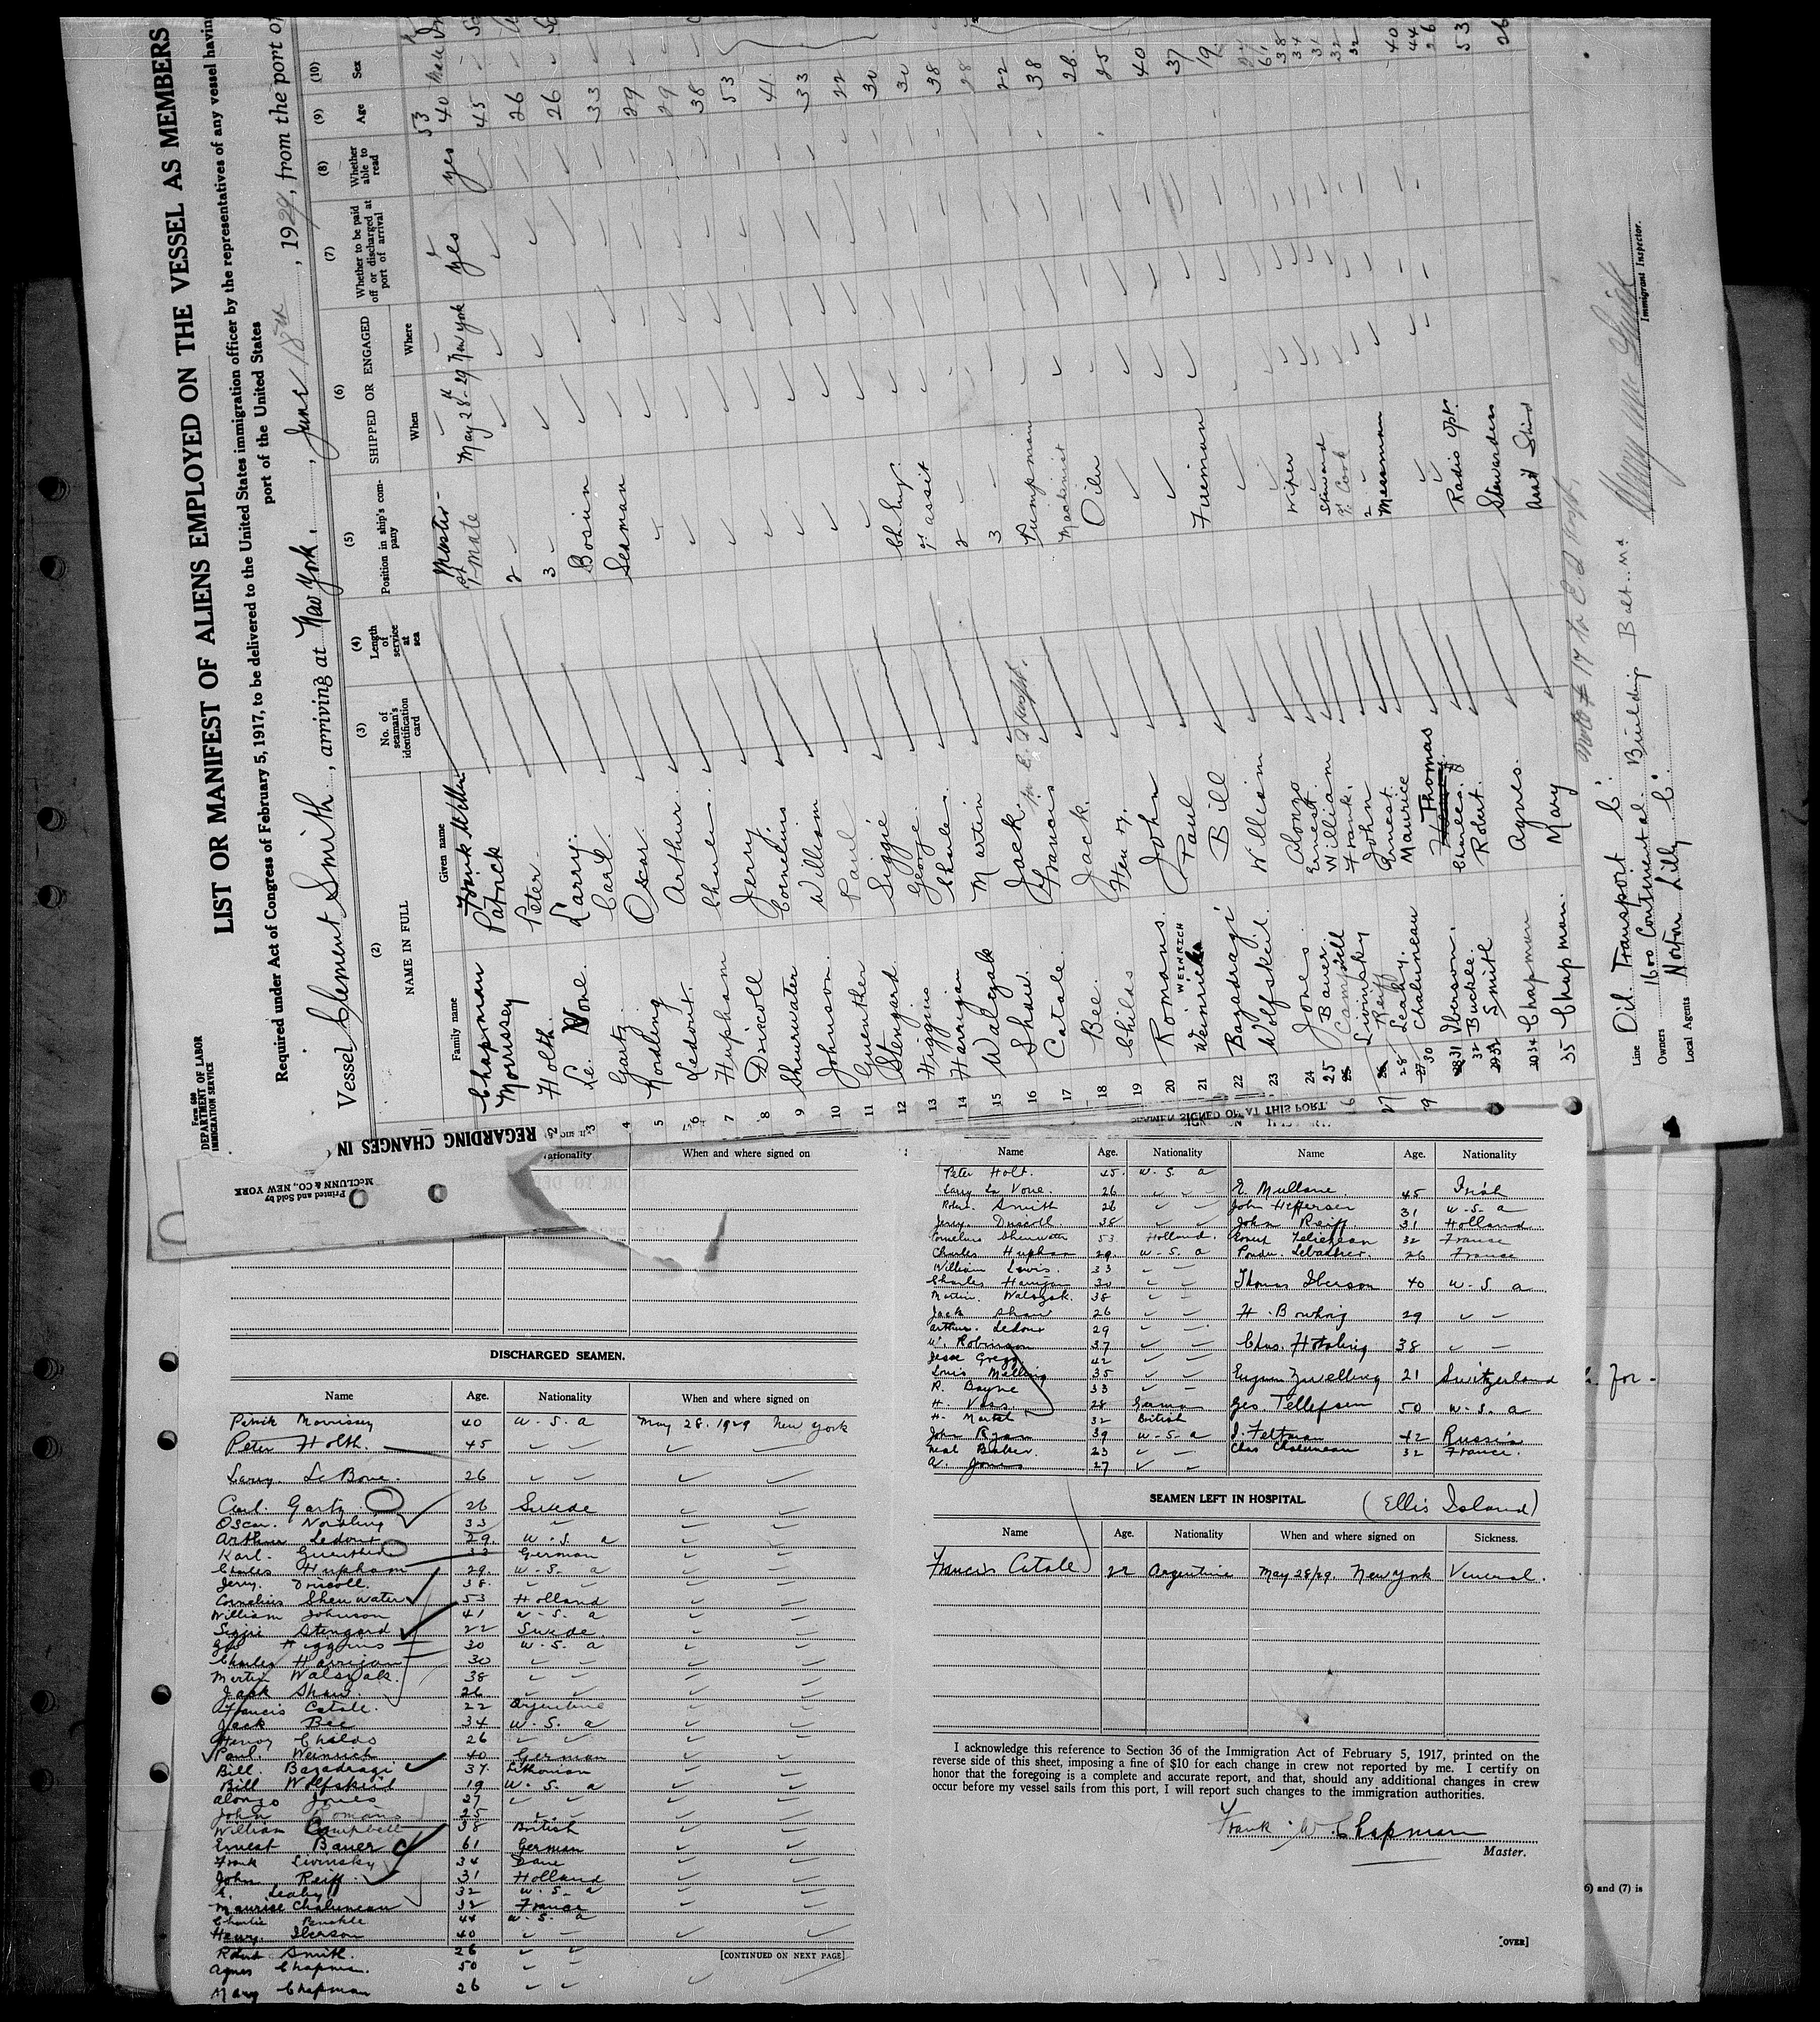 Form 680
DEPARTMENT OF LABOR
IMMIGRATION SERVICE
LIST OR MANIFEST OF ALIENS EMPLOYED ON THE VESSEL AS MEMBERS
Required under Act of Congress of February 5, 1917, to be delivered to the United States immigration officer by the representatives of any vessel having
port of the United States
Vessel Clement Smith, arriving at New York, June 18th, 1929, from the port of
(2) (3) (4) (5) (6) (7) (8) (9) (10)
NAME IN FULL No. of seaman's identification card Length of service at sea Position in ship's company SHIPPED OR ENGAGED Whether to be paid off or discharged at port of arrival Whether able to read Age Sex
Family name Given name When Where
Chapman Frank William Master 53
Morrissey Patrick 1st Mate May 28th-29 New York yes yes 40 Male
2 Holth Peter 2 45
3 Le Vone Larry 3 26
4 Gartz Carl Bosun 26
5 Nordling Oscar Seaman 33
6 Ledoux Arthur 29
7 Hupham Charles 29
8 Driscoll Jerry 38
9 Shuurwater Cornelius 53
10 Johnson William 41
11 Guenther Paul 33
12 Stengard Siggie 22
13 Higgins George Ch. Eng. 30
14 Harrigan Charles 1st assit 30
15 Walszak Martin 2 38
16 Shaw Jack 3 28
17 Catale Francis Pumpman 22
18 Bee Jack Machinist 38
19 Childs Henry Oiler 26
20 Romans John 25
21 Weinrich WEINRICH Paul 40
22 Bazadragi Bill Fireman 37
23 Wolfskeil William 19
24 Jones Alonzo
25 Bauer Ernest Wiper 61
26 Campbell William Steward 38
27 Livinsky Frank 1st Cook 34
28 Reiff John 2 31
Leahy Ernest Messman 32
30 Chaluneau Maurice 32
31 Iberson Thomas 40
32 Buckle Charles 44
Smith Robert Radio Opr. 26
34 Chapman Agnes Stewardess 53
35 Chapman Mary Asst Stwd 26
Line Oil Transport Co.
Owners 1600 Continental Building Balt. Md
Local Agents Norton Lilly Co.
Immigrant Inspector.
REGARDING CHANGES IN
Printed and Sold by
McCLUNN & CO., NEW YORK
Nationality When and where signed on
DISCHARGED SEAMEN.
Name Age. Nationality When and where signed on
Patrick Morrissey 40 U.S.A May 28. 1929 New York
Peter Holth 45
Larry Le Bone 26
Carl Gartz 26 Swede
Oscar Nordling 33
Arthur Ledoux 29 U.S.A
Karl Guenther 33 German
Charles Hupham 29 U.S.A
Jerry Driscoll 38
Cornelius Shenwater 53 Holland
William Johnson 41 U.S.A
Siggie Stengard 22 Swede
Geo Higgins 30 U.S.A
Charles Harrigan 30
Martin Walszak 38
Jack Shaw 26
Francis Catale 22 Argentine
Jack Bee 34 U.S.A
Henry Childs 26
Paul Weinrich 40 German
Bill Bazadragi 37 Lithonian
Bill Wolfskeil 19 U.S.A
Alonzo Jones 27
John Romans 25
William Campbell 38 British
Ernest Bauer 61 German
Frank Livinsky 34 Dane
John Reiff 31 Holland
E. Leahy 32 U.S.A
Maurise Chaluneau 32 France
Charlie Buckle 44 U.S.A
Henry Iberson 40
Robert Smith 26
Agnes Chapman 50
Mary Chapman 26
[CONTINUED ON NEXT PAGE]
SEAMEN SIGNED ON AT THIS PORT.
Name Age. Nationality Name Age. Nationality
Peter Holt 45 U.S.A
Larry La Vone 26 E. Mullane 45 Irish
Robt. Smith 26 John Hefferson 31 U.S.A
Jerry Driscoll 38 John Reiff 31 Holland
Cornelius Shenwater 53 Holland 32 France
Charles Hupham 29 U.S.A 26 France
William Lewis 33
Charles Harrigan 30 Thomas Iberson 40 U.S.A
Martin Walszak 38
Jack Shaw 26 H. Bowhrig 29
Arthur Ledoux 29
W. Robinson 37 Chas. Hotaling 38
Jesse Gregg 42
Louis Melling 35 Eugene Zwelling 21 Switzerland
R. Bayne 33
H. Voss 28 German Geo. Tellefsen 50 U.S.A
H. Martel 32 British
John Ryan 39 U.S.A J. Feltman 42 Russia
Neal Baker 23 Chas Chaluneau 32 France
A. Jones 27
SEAMEN LEFT IN HOSPITAL. (Ellis Island)
Name Age. Nationality When and where signed on Sickness.
Francis Catale 22 Argentine May 28/29. New York Veneral.
I acknowledge this reference to Section 36 of the Immigration Act of February 5, 1917, printed on the
reverse side of this sheet, imposing a fine of $10 for each change in crew not reported by me. I certify on
honor that the foregoing is a complete and accurate report, and that, should any additional changes in crew
occur before my vessel sails from this port, I will report such changes to the immigration authorities.
Frank W Chapman
Master.
[OVER]
for -
6) and (7) is